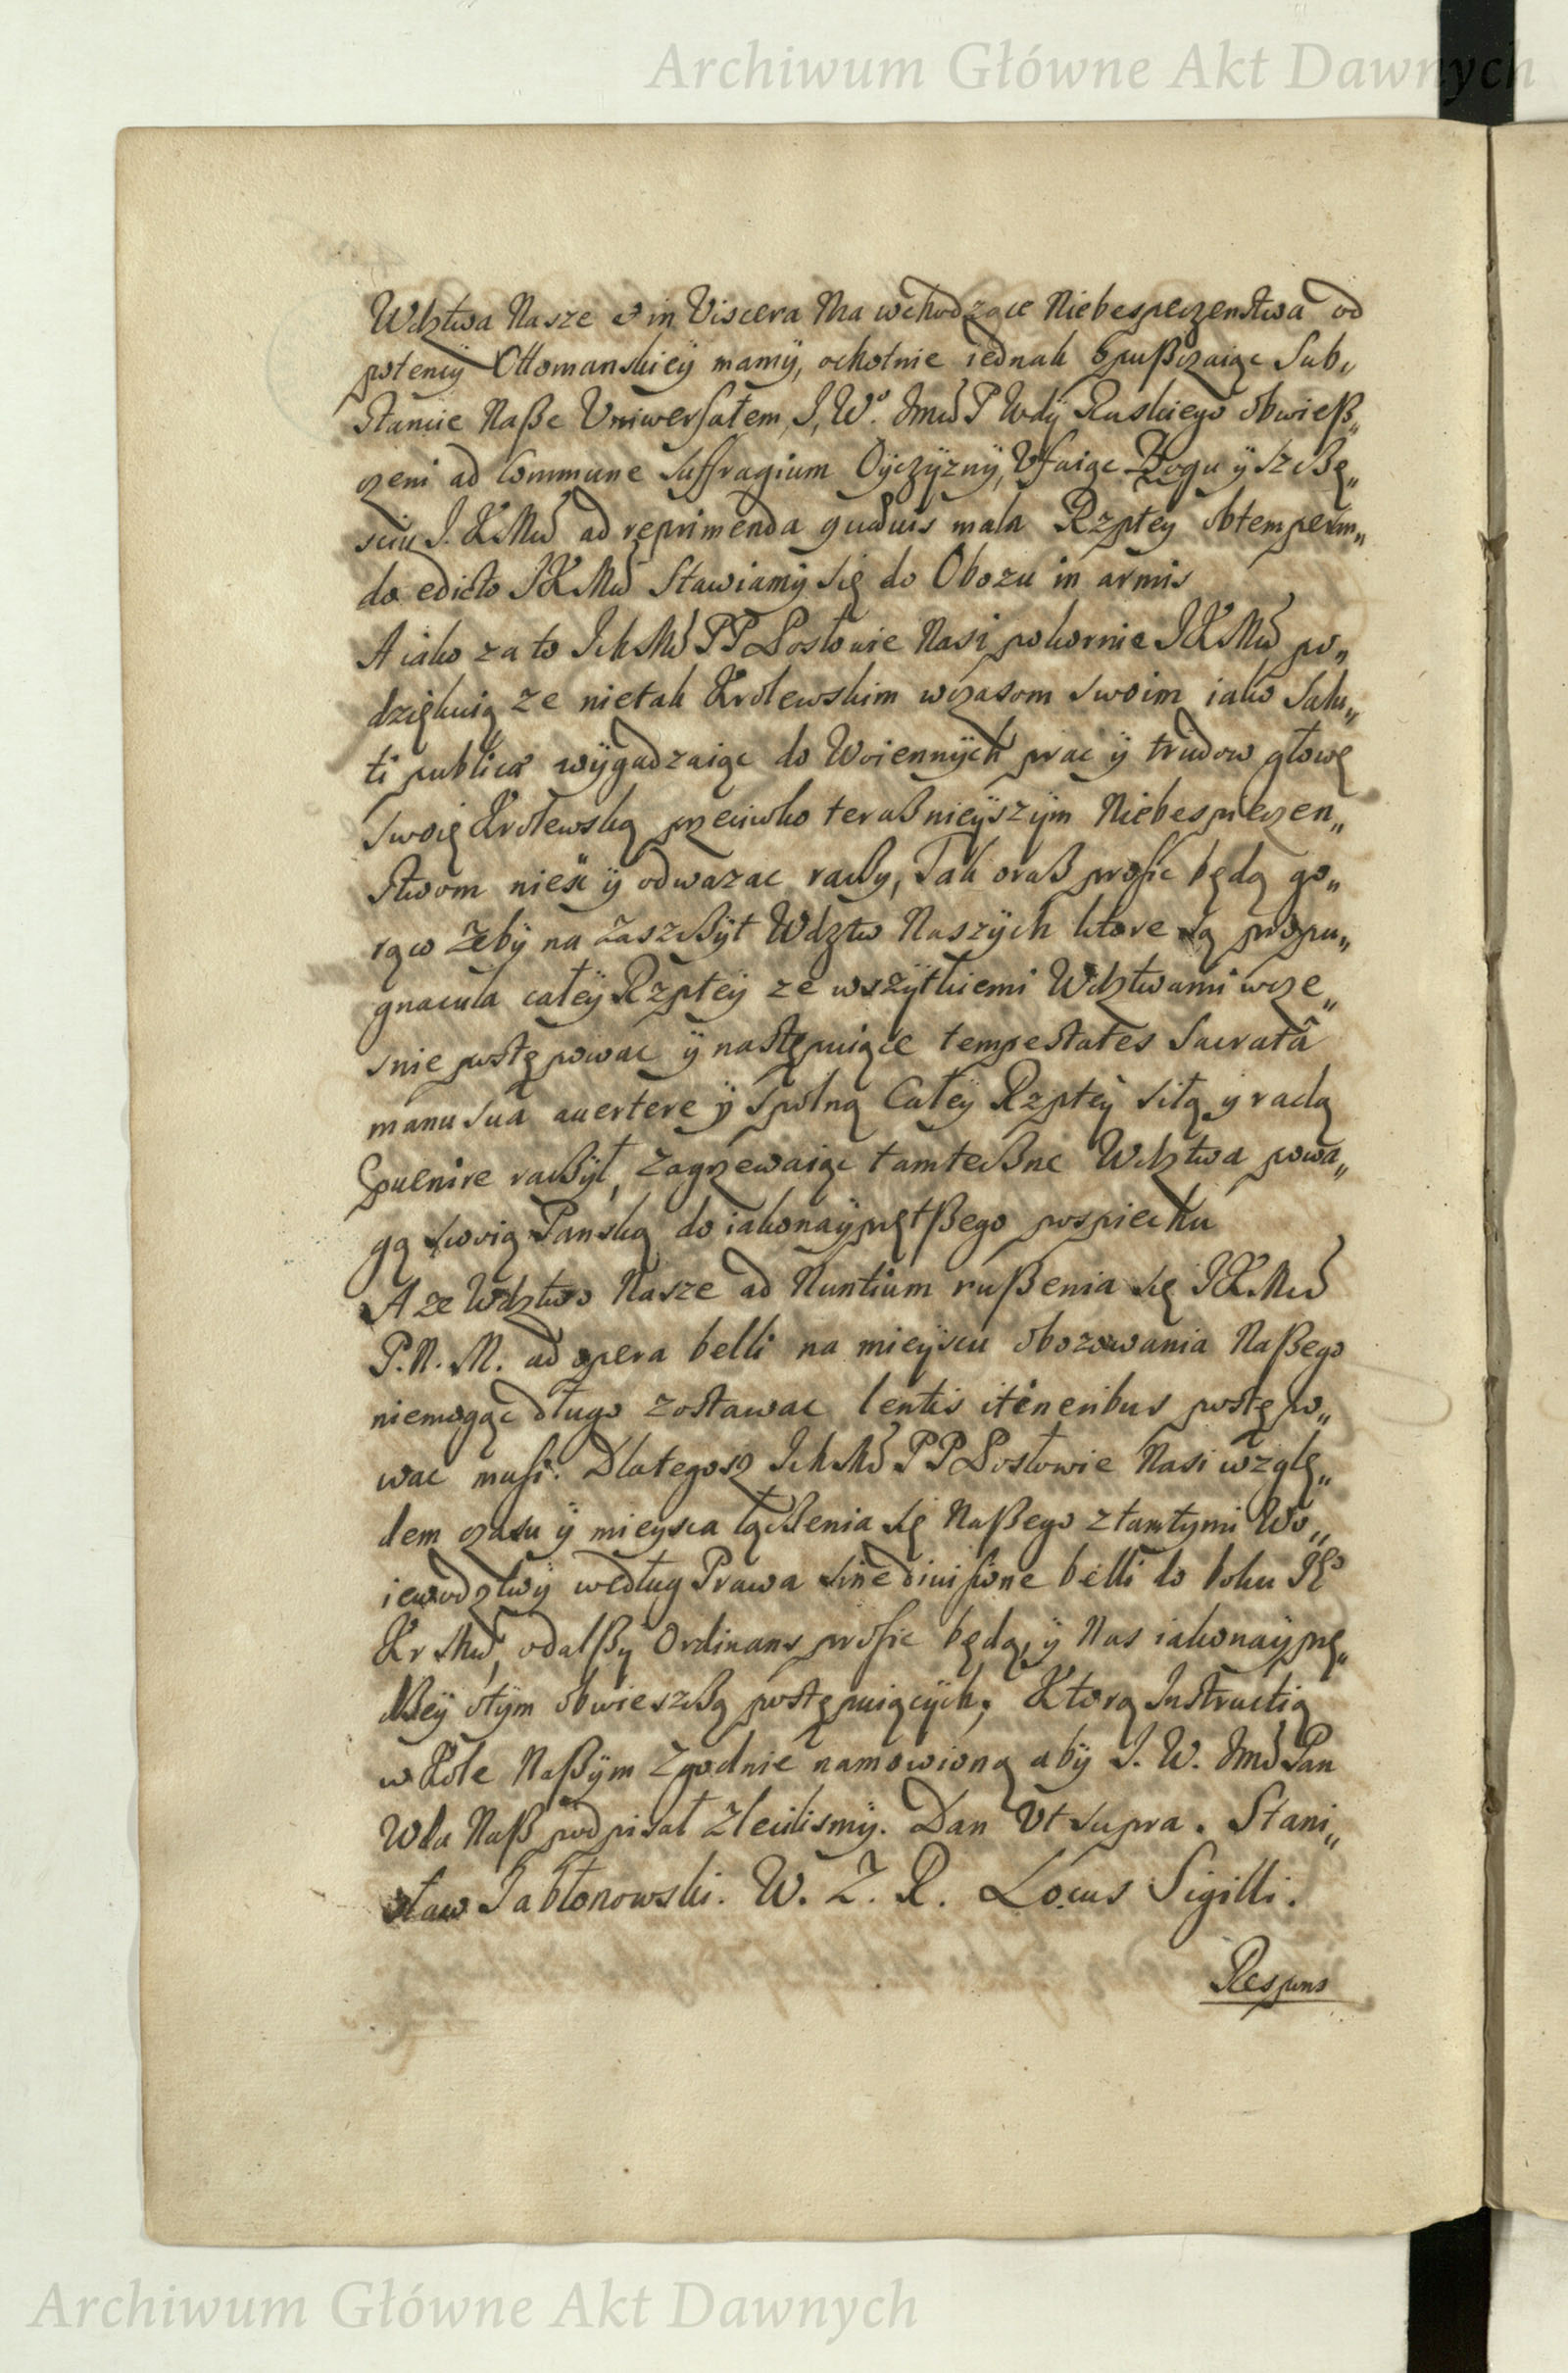 Archiwum Główne Akt Dawnych
Wdztwa Nasze et in Viscera Ma wchodzące Niebespeczenstwa od
potencÿ Ottomanskieÿ mamÿ, ochotnie iednak Opußczaiąc Sub„
stancie Naße Uniwersałem, J, Wo. Jmci P Wdÿ Ruskiego obwieß„
czeni ad Commune suffragium Oÿczÿznÿ, Ufaiąc Bogu ÿ szczę„
sciu J. K Mci ad reprimenda quaevis mala Rzptey obtemperan„
do edicto JK Mci Stawiamÿ się do Obozu in armis
A iako za to Ich Mć PP Posłowie Nasi pokornie JK Mci po„
dziękuią ze nietak Krolewskim wczasom swoim iako Salu„
ti publicæ wÿgadzaiąc do Woiennÿch prac ÿ trudow głowę
swoię Krolewską przeciwko teraßnieÿszÿm Niebespieczen„
stwom nieść ÿ odwazac raczy, Tak oraß prosic będą go„
rąco Zeby na Zaszczÿt Wdztw Naszÿch ktore są propu„
gnacula całeÿ Rzpteÿ ze wszÿtkiemi Wdztwami wcze„
snie postępowac ÿ następuiące tempestates Sacratâ
manu sua auertere ÿ spolną Całeÿ Rzpteÿ siłą y radą
puenire raczÿł, Zagrzewaiąc tamteczne Wdztwa powa„
gą swoią Panską do iakonaÿprętßego pospiechu
A ze Wdztwo Nasze ad Nuntium rußenia się JK Mci
P. N. M. ad opera belli na mieÿscu obozowania Naßego
niemogąc długo zostawac lentis itineribus postępo„
wac musi. Dlategosz Ich Mć PP Posłowie Nasi wzglę„
dem czasu ÿ mieysca łączenia się Naßego z tamtymi Wo„
iewodztwÿ według Prawa sine diuisione belli do boku JEo
Kr Mci, odalßÿ Ordinans prosic będą, ÿ Nas iakonaÿprę„
dzeÿ otÿm obwieszczą postępuiącÿch; Ktorą Instructią
w Kole Naßÿm Zgodnie namowioną abÿ J. W. Jmć Pan
Wda Naß podpisał Zlecilismÿ. Dan Ut supra. Stani„
sław Jabłonowski. W. Z. R. Locus Sigilli.
Respons
Archiwum Główne Akt Dawnych